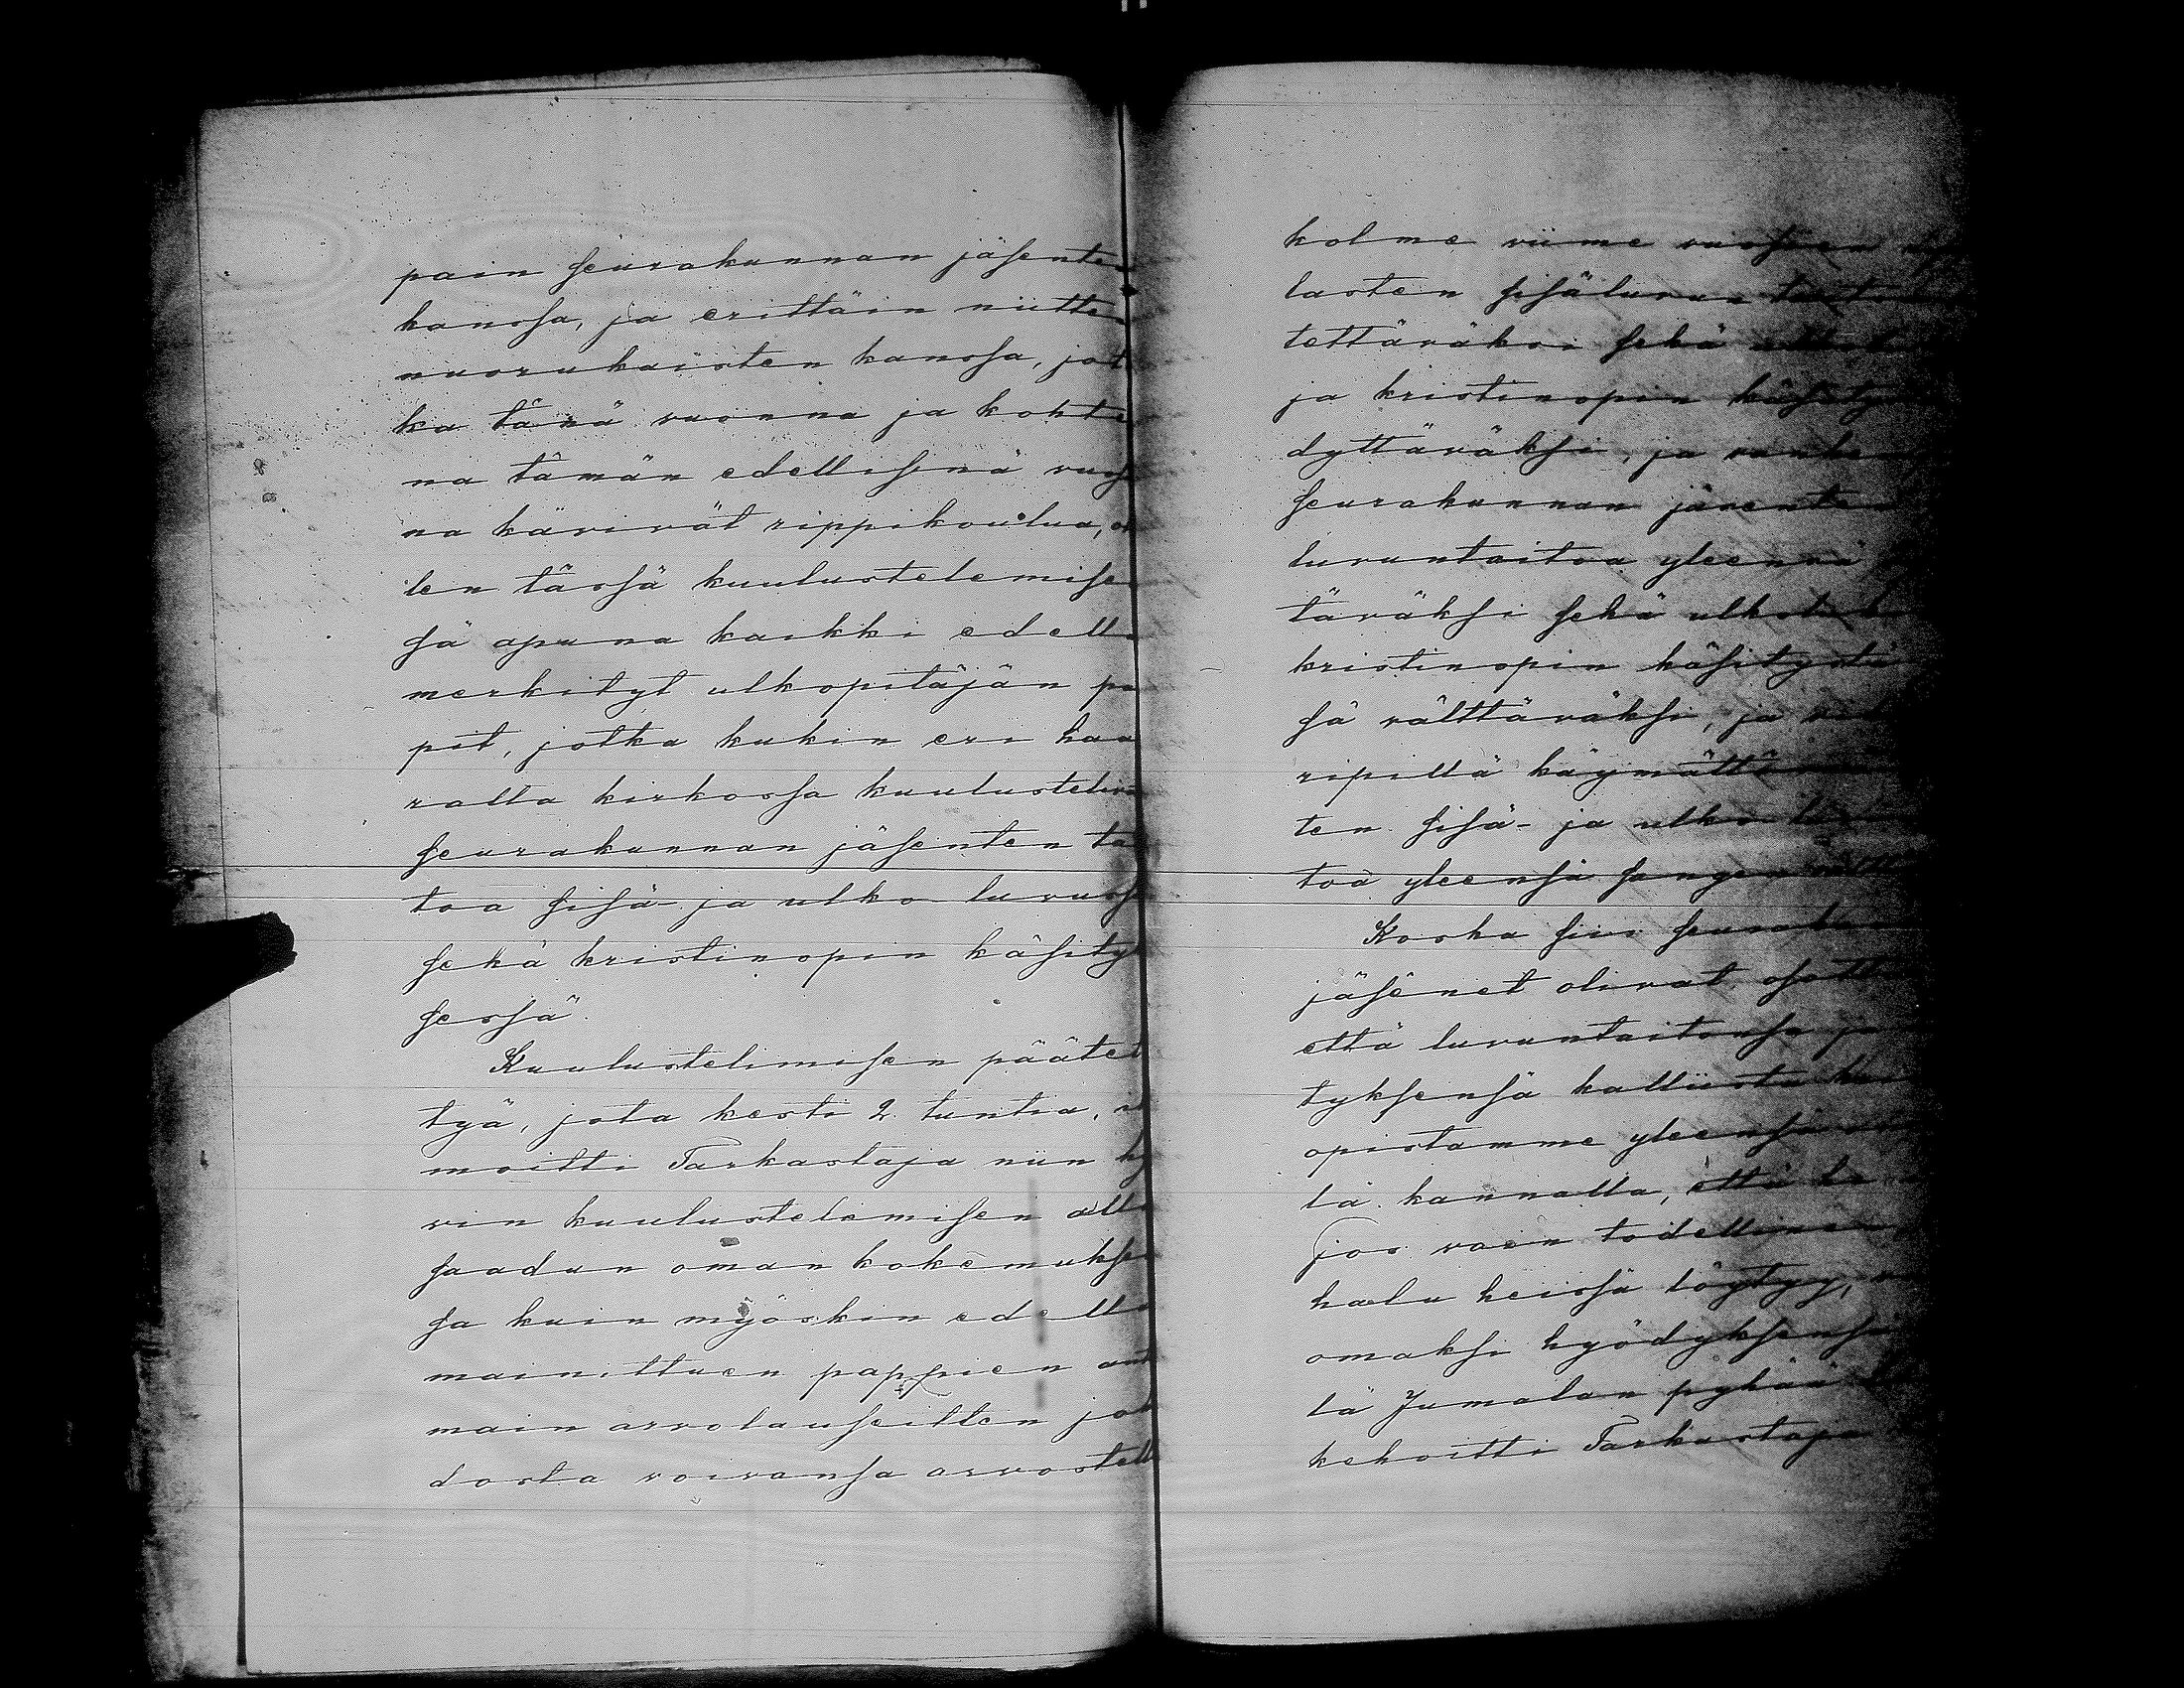 pain seurakunnan jäsenten
kanssa, ja erittäin niitten
nuorukaisten kanssa, jot
ka tänä vuonna ja kohta
na tämän edellisinä vuosi
na kävivät rippikoulua, ol
len tässä kuulustelemises
sä apuna kaikki edellä
merkityt ulkopitäjän pa
pit, jotka kukin eri haa
ralla kirkossa kuulusteliva
seurakunnan jäsenten tai
toa sisä- ja ulko luvussa
sekä kristinopin käsityk
sessä.
Kuulustelimisen päätet
tyä, jota kesti 2 tuntia, il
moitti Tarkastaja niin hy
vin kuulustelemisen alla
saadun oman kokemukse
sa kuin myöskin edellä
mainittuen pappien anta
main arvolauseitten joh
dosta voivansa arvostella
kolme viime vuosien
lasten sisäluvun
tettäväksi sekä
ja kristinopin käsityk
dyttäväksi, ja
seurakunnan jäsenten
luvuntaitoa yleensä
täväksi sekä ulkoluku
kristinopin käsitystä
sä välttäväksi, ja
ripillä käymättö
ten sisä- ja ulko
toa yleensä sangen
Koska siis seurakun
jäsenet olivat osotta
että luvuntaitonsa ja
tyksensä kalliista
opistamme yleensä
lä kannalla, että he
jos vain todellinen
halu heissä löytyy,
omaksi hyödyksensä
lä Jumalan pyhää
kehoitti Tarkastaja